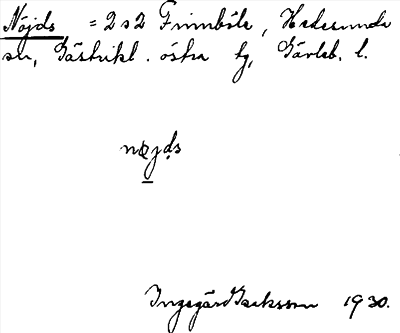 Nöjds = 2 o 2 Finnböle, Hedesunda
sn, Gästrikl. östra tg, Gävleb. l.
nøjds
Ingegärd Isaksson 1930.